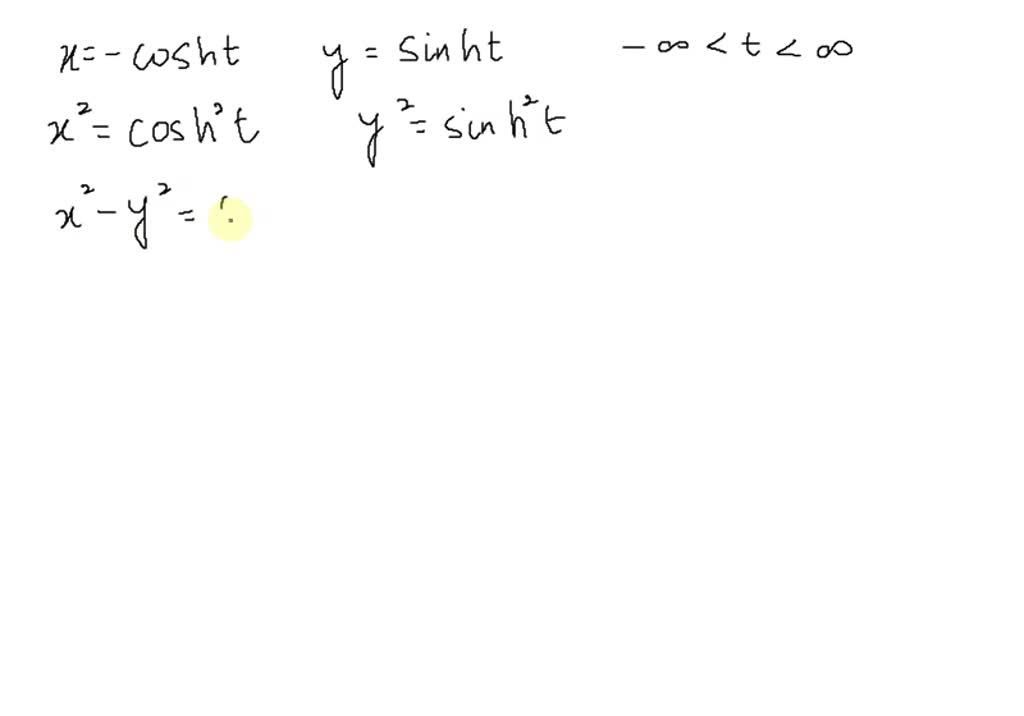 x = - cosht y = sinht - ∞ < t < ∞
x² = cosh²t y² = sinh²t
x² - y² =